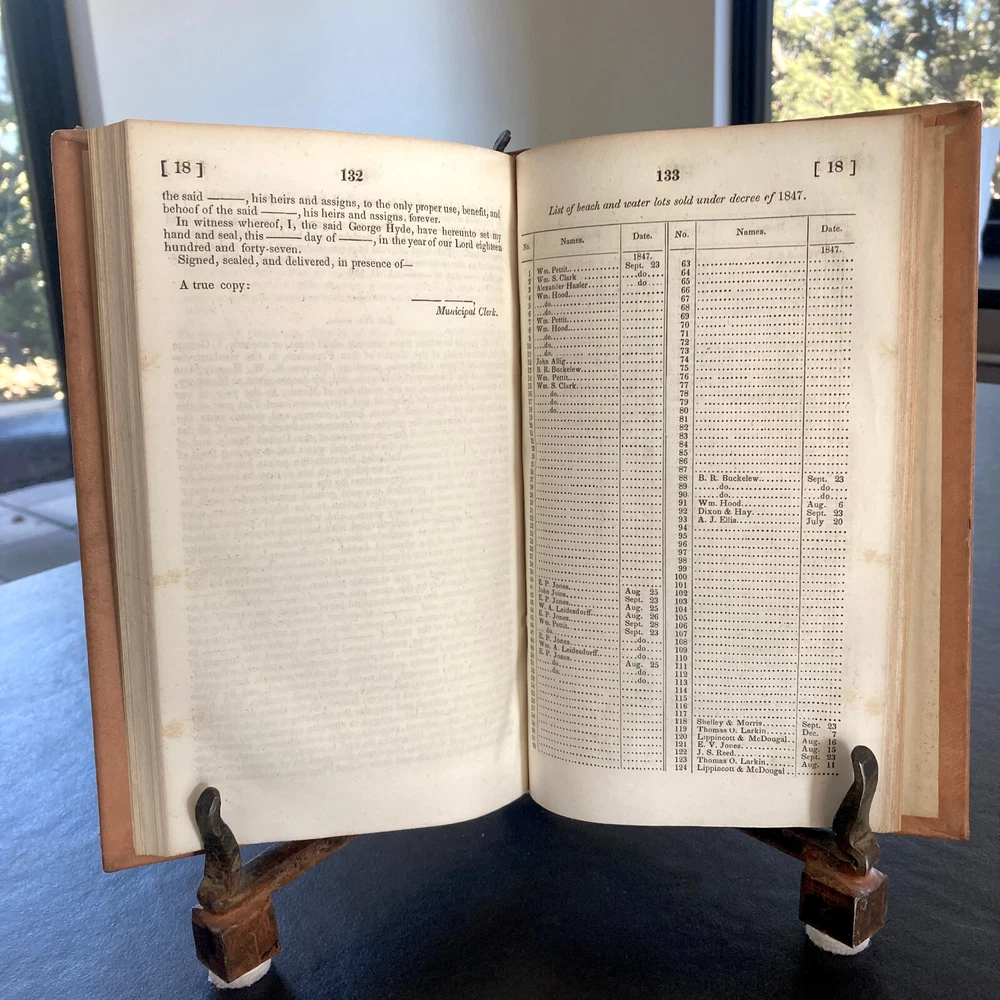 [ 18 ] 132
the said ———, his heirs and assigns, to the only proper use, benefit, and
behoof of the said ———, his heirs and assigns. forever.
In witness whereof, I, the said George Hyde, have hereunto set my
hand and seal, this ——— day of ———, in the year of our Lord eighteen
hundred and forty-seven.
Signed, sealed, and delivered, in presence of—
A true copy:
Municipal Clerk.
133 [ 18 ]
List of beach and water lots sold under decree of 1847.
No. Names. Date.
1847.
Wm. Pettit Sept. 23
Wm. S. Clark do
Alexander Hasler do
Wm. Hood
do.
do.
Wm. Pettit
Wm. Hood
do.
do.
do.
John Allig
B. R. Buckelew
Wm. Pettit
Wm. S. Clark
do.
do.
do.
E. P. Jones Aug 25
John Joice Sept. 23
E. P. Jones Aug. 25
W. A. Leidesdorff Aug. 26
E. P. Jones Sept. 28
Wm. Pettit Sept. 23
do. do
E. P. Jones do
Wm. A. Leidesdorff do
E. P. Jones Aug. 25
do. do
do. do
No. Names. Date.
1847.
63
64
65
66
67
68
69
70
71
72
73
74
75
76
77
78
79
80
81
82
83
84
85
86
87
88 B. R. Buckelew Sept. 23
89 do. do
90 do. do
91 Wm. Hood Aug. 6
92 Dixon & Hay Sept. 23
93 A. J. Ellis July 20
94
95
96
97
98
99
100
101
102
103
104
105
106
107
108
109
110
111
112
113
114
115
116
117
118 Shelley & Morris Sept. 23
119 Thomas O. Larkin Dec. 7
120 Lippincott & McDougal Aug. 16
121 E. V. Jones Aug. 15
122 J. S. Reed Sept. 23
123 Thomas O. Larkin Aug. 11
124 Lippincott & McDougal